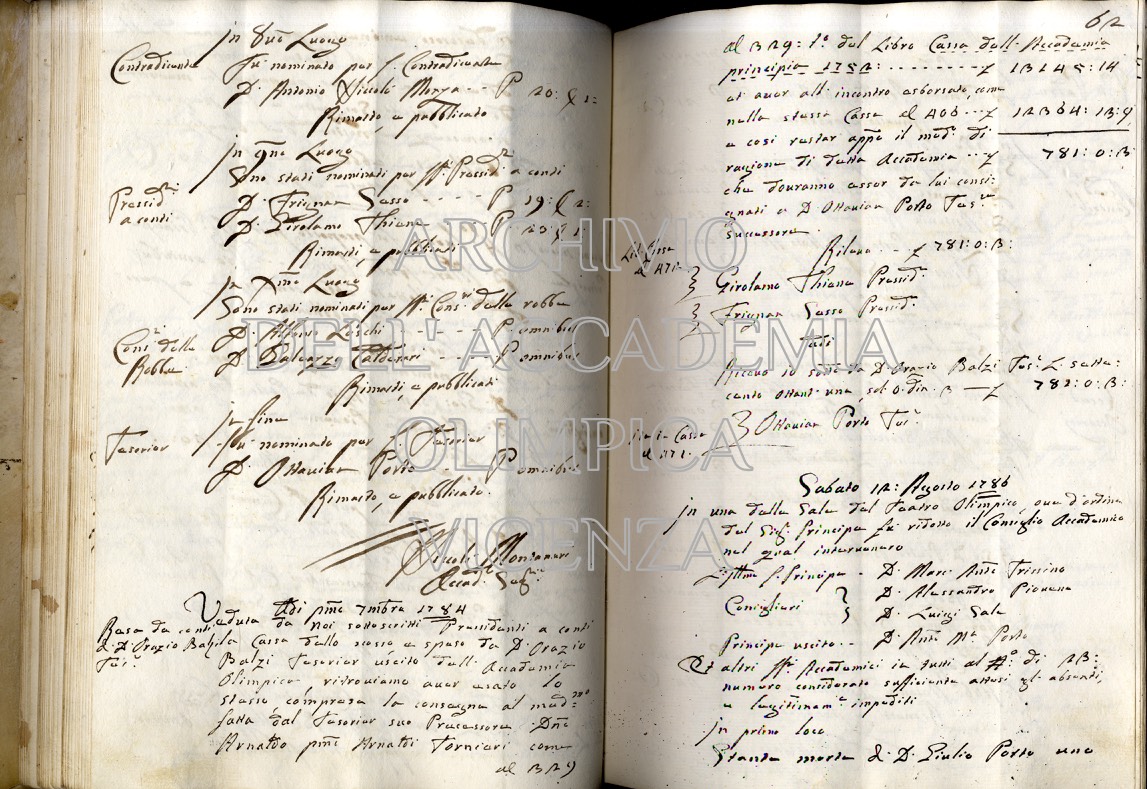 In 8uo Luogo
Contradicente
Fu nominato per S. Contradicente
D. Antonio Niccolò Monza -- P. 20: C 1:
Rimasto, e pubblicato
In 9no Luogo
Sono stati nominati per SS.ri Pressid.ti a conti
Pressid.ti
a conti
D. Frignan Sesso ---- P 19: C 2:
D. Girolamo Thiene -- P. 20: C 1:
Rimasti, e pubblicati
In Xmo Luogo
Sono stati nominati per SS.ri Cons.ri della robba
Cons.ri della
Robba
D. Alfonso Loschi ---- P. omnibus
D. Galeazzo Caldogno ---- P omnibus
Rimasti, e pubblicati
In fine
Tesorier
Fu nominato per S. Tesorier
D. Ottavian Porto --- P omnibus
Rimasto, e pubblicato.
Niccolò Montanari
Accad. Seg.rio
Adi pmo 7mbre 1784
Resa de conti
di D. Orazio Balzi
Tes.r
Veduta da Noi sottoscritti Pressidenti a conti
la Cassa dello scosso, e speso da D. Orazio
Balzi Tesorier uscito dell'Accademia
Olimpica, ritroviamo aver usato lo
stesso, compresa la consegna al med.mo
fatta dal Tesorier suo Precessore Dno
Arnaldo pmo Arnaldi Tornieri come
al 329
62
al 329: to del Libro Cassa dell'Accademia
principia 1752: -------- £ 13145: 14
et aver all'incontro esborsato, come
nella stessa Cassa al 406 --- £ 12364: 13: 9
e così restar appo il med.mo di
ragione di detta Accademia -- £ 781: 0: 3
che dovranno esser da lui consi:
gnati a D. Ottavian Porto Tes.r
Successore.
Rileva --- £ 781: 0: 3:
Lib. Cassa
al 471
Girolamo Thiene Pressid.te
Frignan Sesso Pressid.te
Ricevo io sod.to da D. Orazio Balzi Tes.r L. sette:
cento ottant'una, sol: 0. din. 3 -- £ 781: 0: 3:
Cassa
al 471.
Ottavian Porto Tes.r
Sabato 12: Agosto 1786
In una delle Sale del Teatro Olimpico, ove d'ordine
del Sig.r Principe fu ridotto il Consiglio Accademico
nel qual intervenero
L'Illmo S. Principe - D. Marc'Anto Trissino
Consiglieri
D. Alessandro Piovene
D. Luigi Sale
Principe uscito -- D. Anto Ma Porto
Et altri SS.ri Accademici in tutti al No di 23:
numero considerato sufficiente attesi gl'absenti,
e legitimam.te impediti
In primo loco
Stante morte di D. Giulio Porto uno
ARCHIVIO
DELL'ACCADEMIA
OLIMPICA
VICENZA